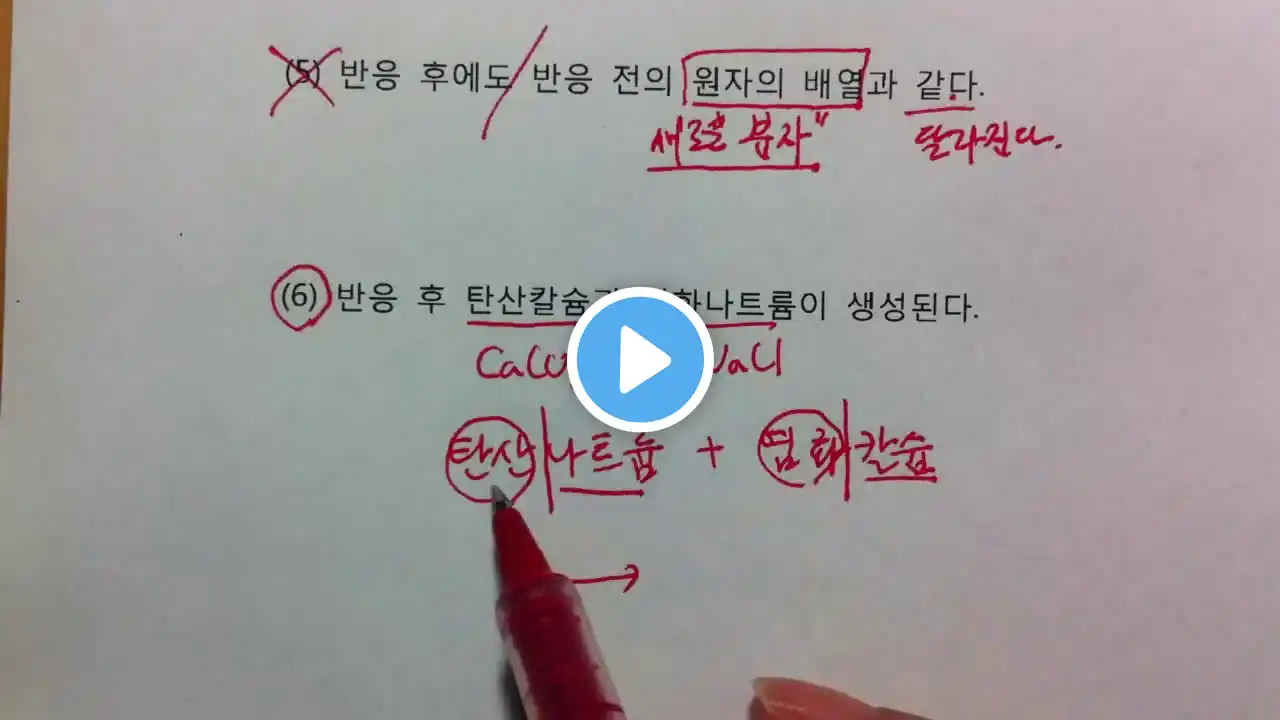 (5) 반응 후에도 반응 전의 원자의 배열과 같다.
새로운 "분자" 달라진다.
(6) 반응 후 탄산칼슘 나트륨이 생성된다.
탄산 나트륨 + 염화 칼슘
→